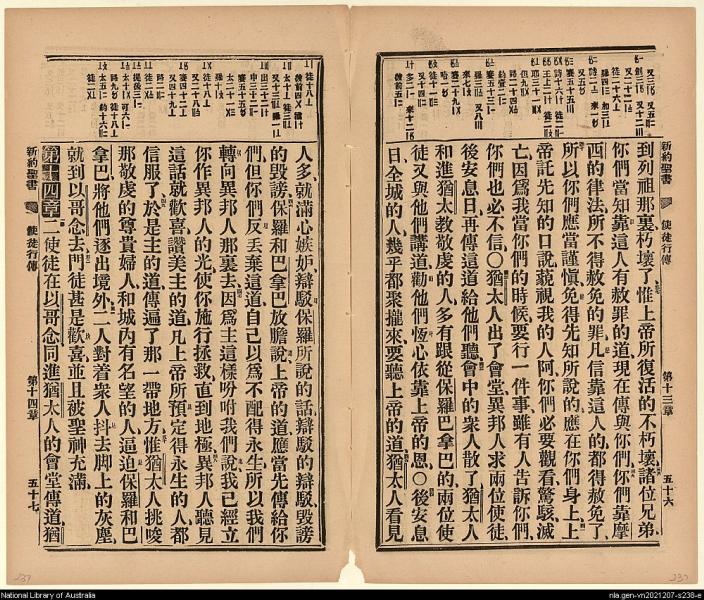 新約聖書
使徒行傳
第十三章
五十六
到列祖那裏朽壞了惟上帝所復活的不朽壞諸位兄弟
你們當知靠這人有赦罪的道現在傳與你們你們靠摩
西的律法所不得赦免的罪凡信靠這人的都得赦免了
所以你們應當謹慎免得先知所說的應在你們身上上
帝託先知的口說藐視我的人阿你們必要觀看驚駭滅
亡因爲我當你們的時候要行一件事雖有人告訴你們
你們也必不信○猶太人出了會堂異邦人求兩位使徒
後安息日再傳這道給他們聽會中的衆人散了猶太人
和進猶太教敬虔的人多有跟從保羅巴拿巴的兩位使
徒又與他們講道勸他們恆心依靠上帝的恩○後安息
日全城的人幾乎都聚攏來要聽上帝的道猶太人看見
人多就滿心嫉妒辯駁保羅所說的話辯駁的辯駁毀謗
的毀謗保羅和巴拿巴放膽說上帝的道應當先傳給你
們但你們反丟棄這道自己以爲不配得永生所以我們
轉向異邦人那裏去因爲主這樣吩咐我們說我已經立
你作異邦人的光使你施行拯救直到地極異邦人聽見
這話就歡喜讚美主的道凡上帝所預定得永生的人都
信服了於是主的道傳遍了那一帶地方惟猶太人挑唆
那敬虔的尊貴婦人和城內有名望的人逼迫保羅和巴
拿巴將他們逐出境外二人對着衆人抖去脚上的灰塵
就到以哥念去門徒甚是歡喜並且被聖神充滿
第十四章二使徒在以哥念同進猶太人的會堂傳道猶
新約聖書
使徒行傳
第十四章
五十七
237
237
National Library of Australia
nla.gen-vn2021207-s238-e